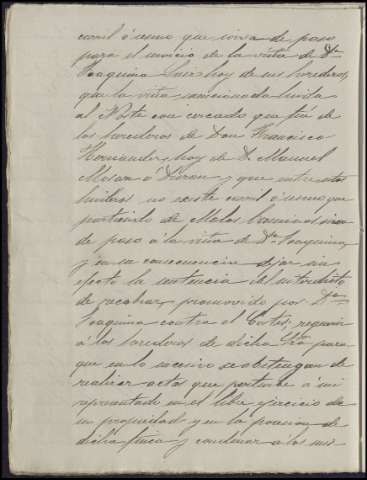 carril ó ramo que sirva de paso
para el servicio de la viña de Dª
Joaquina Luis hoy de sus herederos,
que la viña mencionada linda
al Norte con cercado que fué de
los herederos de Don Francisco
Hernandez, hoy de D. Manuel
Moran o Duran y que entre estos
linderos no existe carril ó ramo que
partiendo de Malos Caminos sirva
de paso á la viña de Dª Joaquina,
y en su consecuencia dejar sin
efecto la sentencia del interdicto
de recobrar promovido por Dª
Joaquina contra el Cortes, requerir
á los herederos de dicha Sra para
que en lo sucesivo se abstengan de
realizar actos que perturben á mi
representado en el libre ejercicio de
su propiedad y en la posesion de
dicha finca y condenar á los mis-